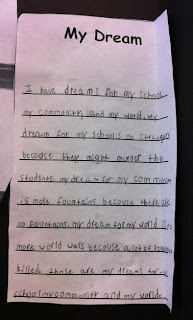 My Dream
I have dreams for my school
my community, and my world. my
dream for my school is no strangers
because they might murder the
students. my dream for my community
is more fountains because there are
no fountains. my dream for my world is no
more world wars because a lot of people
killed. these are my dreams for my
school my community and my world.